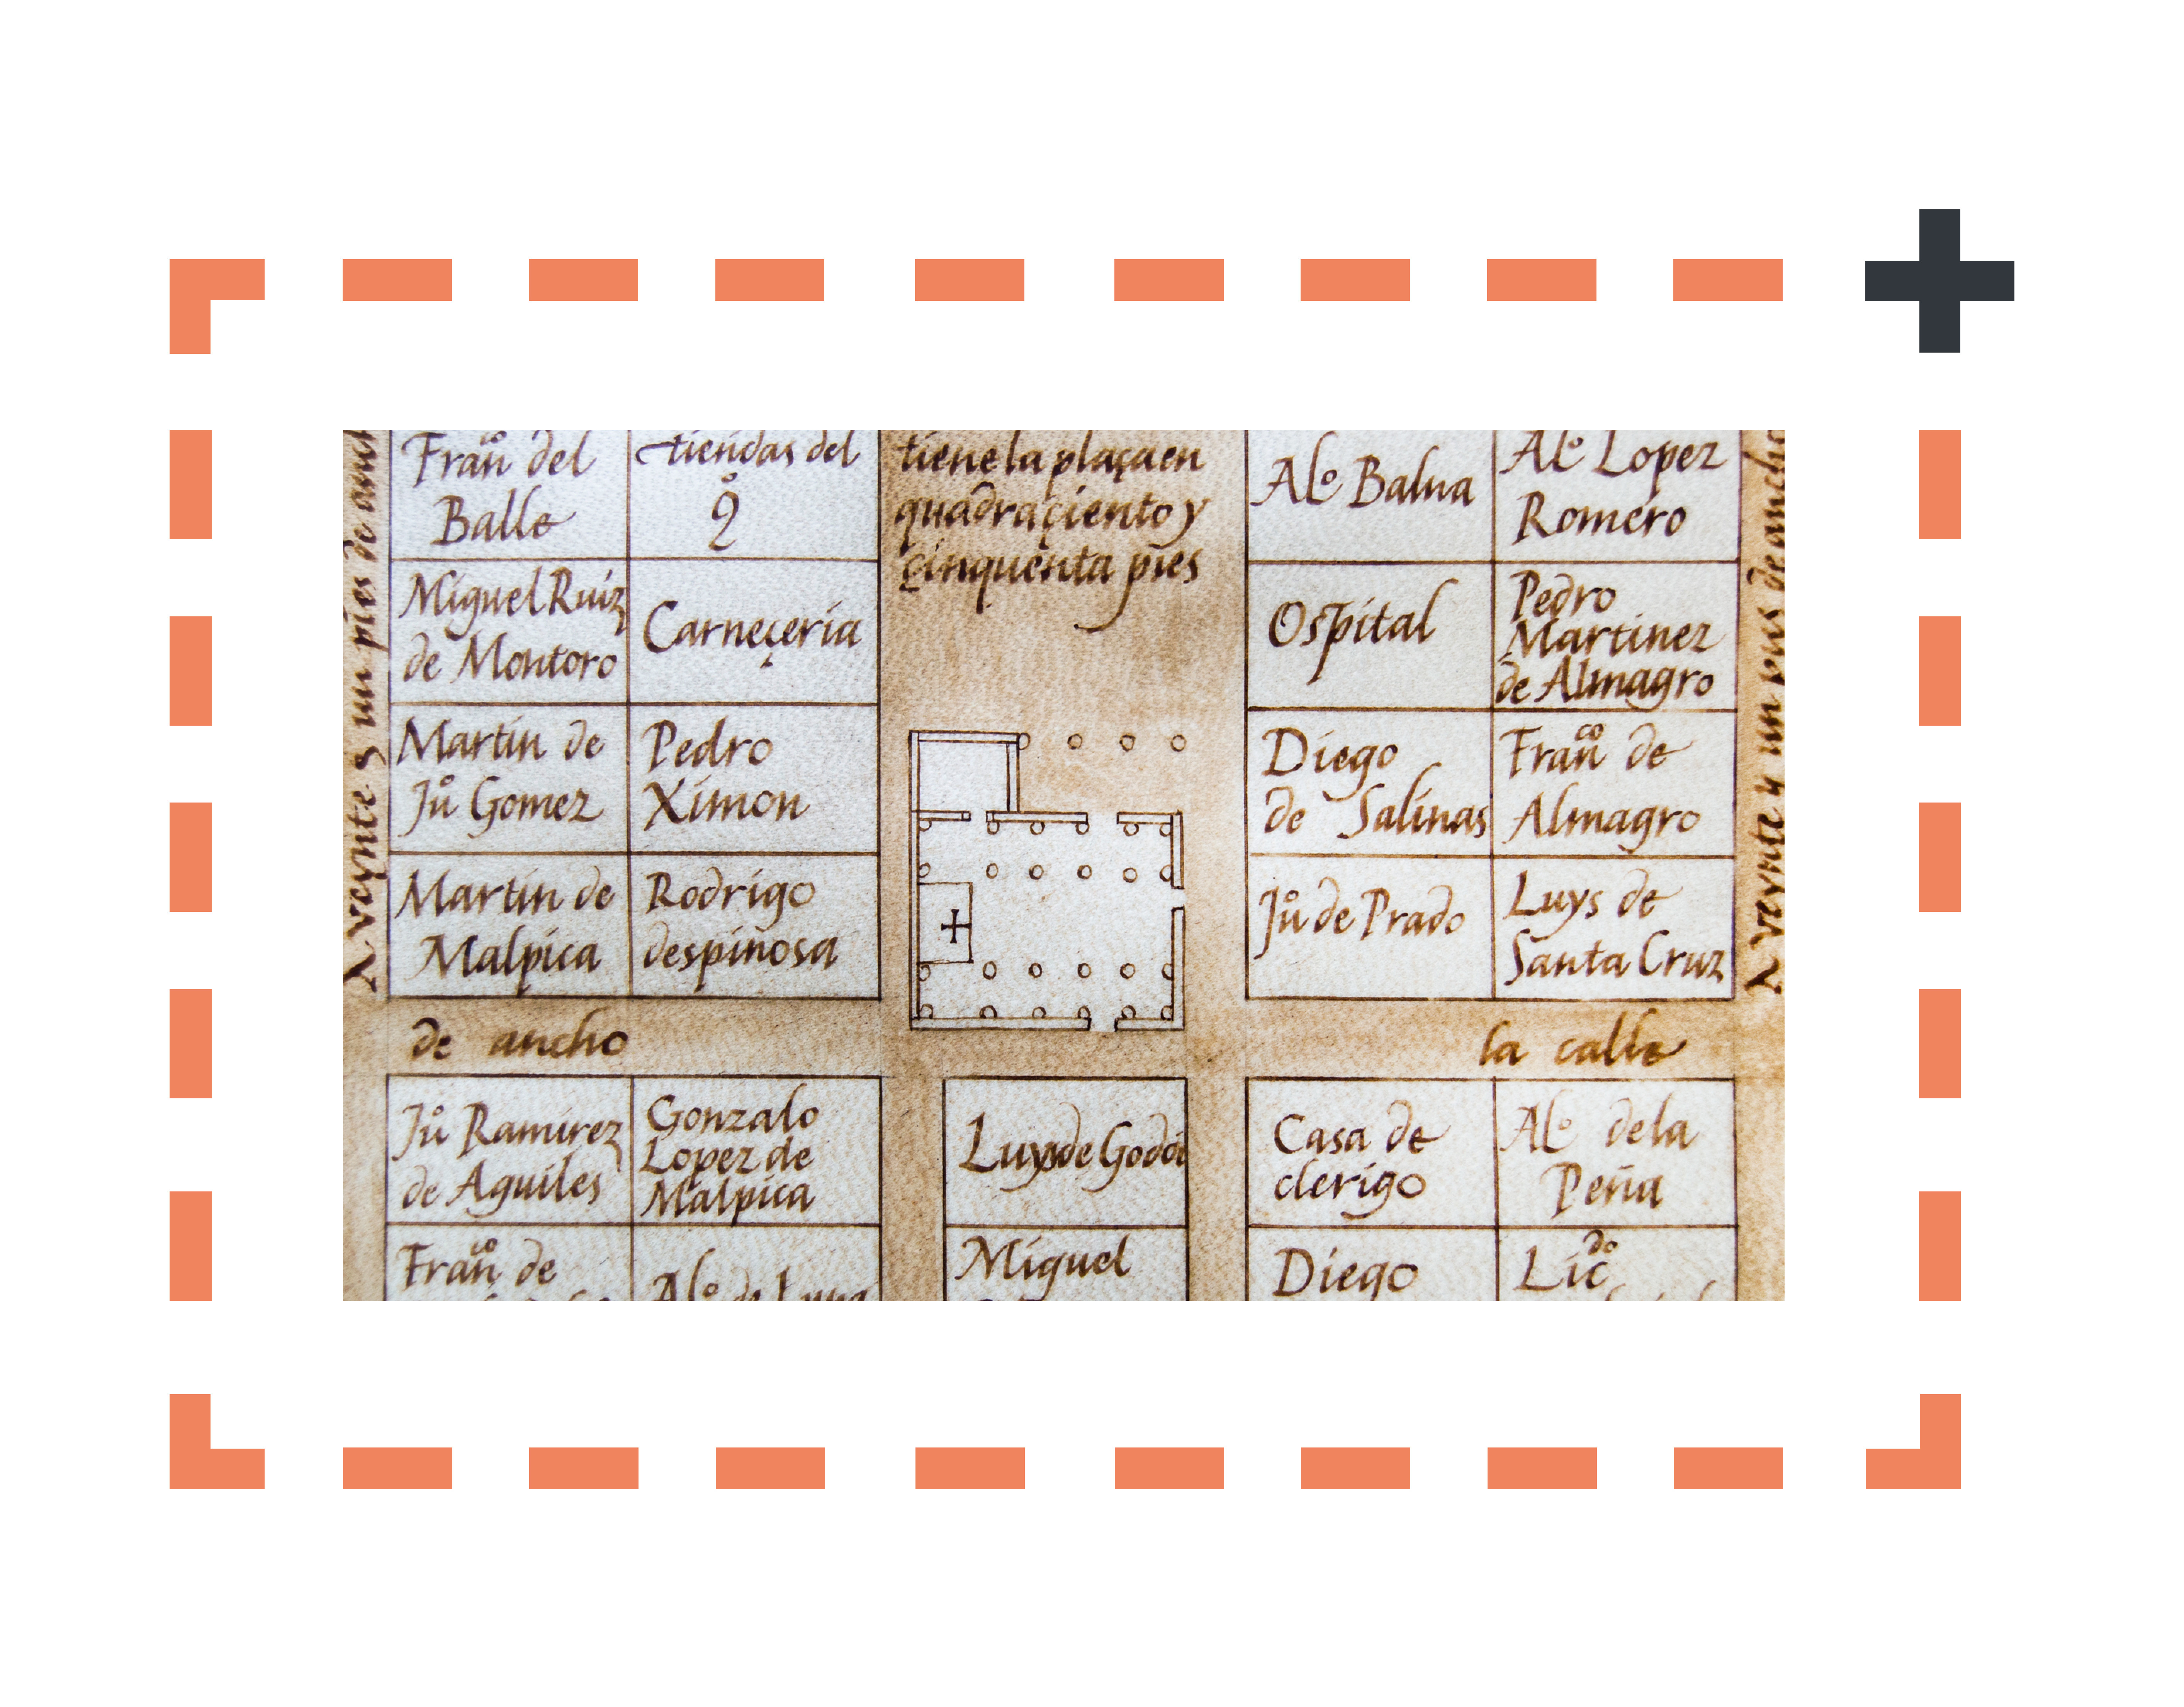 Franco del
Balle
tiendas del
qo
tiene la plaça en
quadra çiento y
çinquenta pies
Alo Balua
Alo Lopez
Romero
Miguel Ruiz
de Montoro
Carneçeria
Ospital
Pedro
Martinez
de Almagro
Martin de
Juo Gomez
Pedro
Ximon
Diego
de Salinas
Franco de
Almagro
Martin de
Malpica
Rodrigo
despinosa
Juo de Prado
Luys de
Santa Cruz
veynte y un pies de
veynte y un pies de ancho
de ancho
la calle
Juo Ramirez
de Aguiles
Gonzalo
Lopez de
Malpica
Luys de Godoi
Casa de
clerigo
Alo dela
Peña
Franco de
Alo de Luna
Miguel
Diego
Licdo